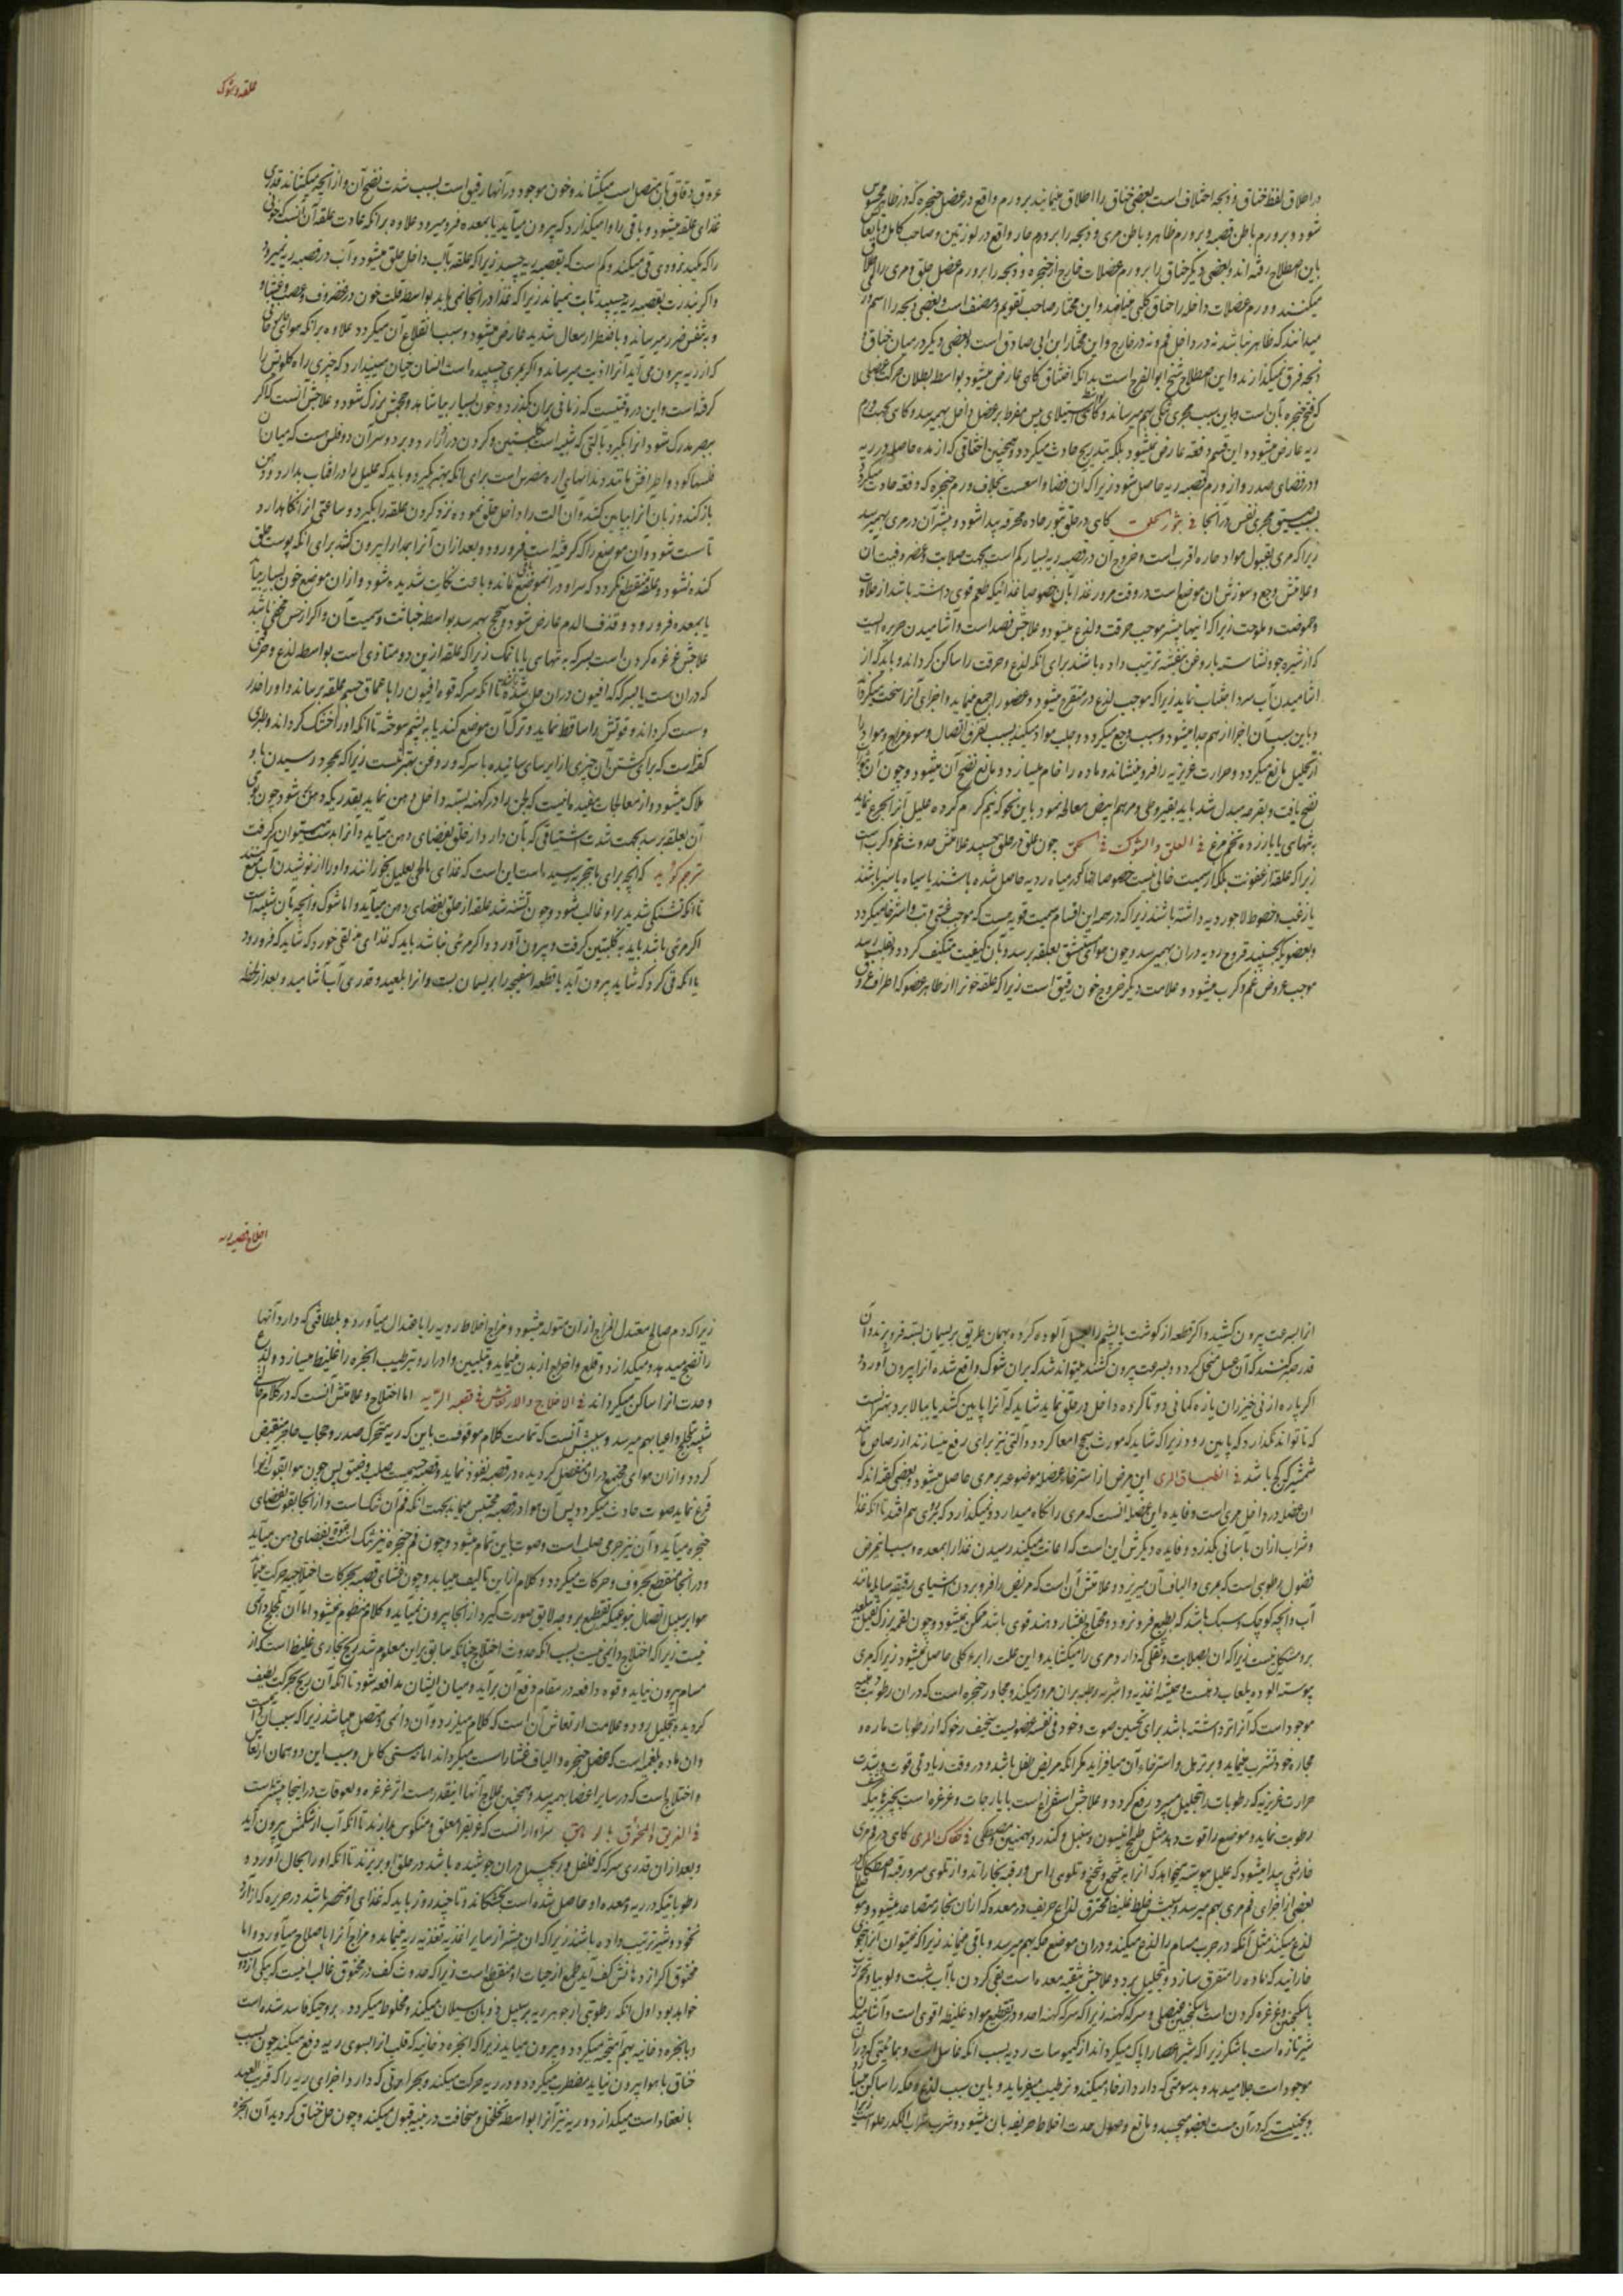 در اطلاق لفظ خناق و ذبحه اختلاف است بعضی خناق را اطلاق مینمایند بر ورم واقع در عضل حنجره که در ظاهر محسوس
شود و بر ورم باطن قصبه و بر ورم ظاهر و باطن مری و ذبحه را بر ورم حار واقع در لوزتین و صاحب کامل
باین اصطلاح رفته اند و بعضی دیگر خناق را بر ورم عضلات خارج از حنجره و ذبحه را بر ورم عضل حلق و مری
میکنند و ورم عضلات داخله را خناق کلبی و این مختار صاحب تقویم و مصنف است و بعضی ذبحه را اسم ورم
میدانند که ظاهر نباشد نه در داخل فم و نه در خارج و این مختار ابن ابی صادق است و بعضی دیگر در میان خناق و
ذبحه فرق نمیگذارند و این اصطلاح شیخ ابو الفرج است بدانکه اختناق گاهی عارض میشود بواسطه بطلان حرکت عضلی
که فتح حنجره بآن است و باین سبب مجری تنگی بهم میرساند
ریه عارض میشود و این قسم دفعه عارض نمیشود بلکه بتدریج حادث میگردد و همچنین اختناقی که از مده حاصله در ریه
و در فضای صدر و از ورم قصبه ریه حاصل شود زیرا که آن فضا واسعست بخلاف ورم حنجره که دفعه حادث میگردد
بسبب ضیق مجری نفس در آنجا فی بثور الحلق گاهی در حلق بثور حاده محرقه پیدا شود و بیشتر آن در مری بهم میرسد
زیرا که مری بقبول مواد حاره اقرب است و خروج آن در قصبه ریه بسیار کم است بجهت صلابت و غضروفیت آن
و علامتش وجع و سوزش آن موضع است در وقت مرور غذا بآن خصوصا غذائیکه طعم قوی داشته باشد از حلاوت
و حموضت و ملوحت زیرا که اینها بیشتر موجب حرقت و لذع میشود و علاجش فصد است و آشامیدن حریره ایست
که از شیره جو و نشاسته با روغن بنفشه ترتیب داده باشند برای آنکه لذع و حرقت را ساکن گرداند و باید که از
آشامیدن آب سرد اجتناب نماید زیرا که موجب لذع در متقرح میشود و عضو را جمع مینماید و اجزای آنرا سخت میگرداند
و باین سبب آن اجزا از هم جدا میشود و سبب وجع میگردد و جلب مواد میکند بسبب تفرق اتصال و سوء مزاج و مواد را
از تحلیل مانع میگردد و حرارت غریزیه را فرو مینشاند و ماده را خام میسازد و مانع نضج آن میشود و چون آن بثور
نضج یافت و بقرحه مبدل شد باید بقیروطی و مرهم ابیض معالجه نمود باین نحو که نیم گرم کرده علیل آنرا تجرع نماید
به تنهایی یا با زرده تخم مرغ فی العلق و الشوک فی الحلق چون علق در حلق بچسبد علامتش حدوث غم و کرب است
زیرا که علقه از عفونت بلکه از سمیت خالی نیست خصوصا هرگاه که در میاه ردیه حاصل شده باشند یا سیاه یا سبز باشند
یا زغب و خطوط لاجوردیه داشته باشند زیرا که در همه این اقسام سمیت قویه هست که موجب غشی و تب و استرخا میگردد
و بعضویکه بچسپند قروح ردیه در آن بهم میرسد و چون هوای مستنشق بعلقه برسد و بآن کیفیت متکیف گردد و بقلب رسد
موجب عروض غم و کرب میشود و علامت دیگر خروج خون رقیق است زیرا که علقه خونرا از ظاهر عضو که اطراف عروق
علقه و شوک
عروق دقاق بآن متصل است میکشاند و خون موجود در آنها رقیق است بسبب شدت نضج آن و از آنچه میکشاند قدری
غذای علقه میشود و باقی را وا میگذارد که بیرون میآید یا بمعده فرو میرود علاوه بر آنکه عادت علقه آن آنست که خونی
را که بمکید بزودی قی میکند و کم است که بقصبه ریه بچسبد زیرا که علقه بآب داخل حلق میشود و آب در قصبه ریه نمیرود
و اگر بندرت بقصبه ریه بچسپد ثابت نمیماند زیرا که غذا در آنجا نمی یابد بواسطه قلت خون در غضروف و عصب و غشاء
و به تنفس ضرر میرساند و باضطرار سعال شدید عارض میشود و سبب انقلاع آن میگردد علاوه بر آنکه هوای حار
که از ریه بیرون می آید آنرا اذیت میرساند و اگر بمری چسپیده است انسان چنان میپندارد که چیزی راه گلویش را
گرفته است و این در وقتیست که زمانی بر آن بگذرد و خون بسیار بیاشامد و حجمش بزرگ شود و علاجش آنست که اگر
ببصر مدرک شود آنرا بگیرد بآلتی که شبیه است بکلبتین و گردن دراز دارد و بر دو سر آن دو فلس هست که میان
فلسها گود و اطراف مانند دندانهای اره مضرس است برای آنکه بهتر بگیرد و باید که علیل را در آفتاب بدارد و دهن
باز کند و زبان آنرا بپایین کشد و آن آلت را داخل حلق نموده نزد گردن علقه را بگیرد و ساعتی آنرا نگاه دارد
تا سست شود و آن موضع را که گرفته است فرو رود و بعد از آن آنرا بمدارا بیرون کشد برای آنکه پوست حلق
کنده نشود و علقه منقطع نگردد که سر او در آن موضع بماند و باعث نکایت شدیده شود و از آن موضع خون بسیار بیاید
یا بمعده فرو رود و قذف الدم عارض شود و سحج بهم رسد بواسطه خباثت و سمیت آن و اگر از حس مخفی باشد
علاجش غرغره کردن است بسرکه به تنهایی یا با نمک زیرا که علقه ازین دو متاذی است بواسطه لذع و حرقتی
که در آن هست یا بسرکه که افیون در آن حل شده باشد تا آنکه سرکه قوه افیون را باعماق جسم علقه برساند و او را خدر
و سست گرداند و قوتش را ساقط نماید و ترک آن موضع کند یا به پشم سوخته تا آنکه او را خشک گرداند و طبری
گفته است که برای کشتن آن چیزی از ایرسای سائیده با سرکه و روغن بهتر نیست زیرا که بمجرد رسیدن باو
هلاک میشود و از معالجات غیر مانیست که طین را در کهنه بسته داخل دهن نماید بقدریکه دهن پر شود چون بوی
آن بعلقه برسد بجهت شدت اشتیاقی که بآن دارد از حلق بفضای دهن میآید و آنرا بدست میتوان گرفت
مترجم گوید که آنچه برای ما بتجربه رسیده است این است که غذای مالح بعلیل بخورانند و او را از نوشیدن آب منع کنند
تا آنکه تشنگی شدید بر او غالب شود و چون تشنه شد علقه از حلق بفضای دهن میآید و اما شوک و آنچه بآن شبیه است
اگر مرئی باشد باید به کلبتین گرفت و بیرون آورد و اگر مرئی نباشد باید که غذای مزلقی خورد که شاید که فرو رود
یا آنکه قی کرد که شاید بیرون آید یا قطعه اسفنجه را بریسمان بست و آنرا بلعید و قدری آب آشامید و بعد از لحظه
آنرا بسرعت بیرون کشید و اگر قطعه از گوشت یا پشم را بعسل آلوده کرده بهمان طریق بریسمان بسته فرو برند و آن
قدر صبر کنند که آن عسل منحل گردد و بسرعت بیرون کشند میتواند شد که بر آن شوک واقع شده آنرا بیرون آورد و
اگر پاره از نی خیزران یا زه کمانی دو تا کرده داخل در حلق نماید شاید که آنرا پایین کشد یا ببالا برد و بهتر آنست
که تا تواند نگذارد که پایین رود زیرا که شاید که مورث سحج امعا گردد و آلتی نیز برای رفع میسازند از رصاص مانند
شمشیر که کج باشد فی انطباق المری این مرض از استرخاء عضله موضوعه بر مری حاصل میشود و بعضی گفته اند که
آن عضله در داخل مری است و فایده این عضله آنست که مری را نگاه میدارد و نمیگذارد که بر روی هم افتد تا آنکه غذا
و شراب از آن بآسانی بگذرد و فایده دیگرش این است که اعانت میکند رسیدن غذا را بمعده و سبب این مرض
فضول رطوبی است که بمری و الیاف آن میریزد و علامتش آن است که مریض را فرو بردن اشیای رقیقه سیاله مانند
آب و آنچه کوچک و سبک باشد که بطبع فرو نرود و محتاج بفشار دهنده قوی باشد ممکن نمیشود و چون لقمه بزرگ ثقیل بلعد
بر او مشکل نیست زیرا که آن بصلابت و ثقلی که دارد مری را میکشاید و این علت را برء کلی حاصل نمیشود زیرا که مری
پیوسته آلوده بلعاب دهنست و همیشه اغذیه و اشربه رطبه بر آن مرور میکند و مجاور حنجره است که در آن رطوبت لزجه
موجود است که آنرا تر داشته باشد برای تحسین صوت و خود فی نفسه عضویست سخیف رخو که از رطوبات باره
مجاره خود تشرب مینماید و بر ترهل و استرخای آن میافزاید مگر آنکه مریض طفل باشد و در وقت زیادتی قوت و شدت
حرارت غریزیه که رطوبات را تحلیل میبرد رفع گردد و علاجش استفراغ است بایارجات و غرغره است بچیزهائیکه
رطوبت نماید و موضع را قوت دهد مثل طبیخ انیسون و سنبل و کندر و بهمنین و مصطکی فی حکاک المری گاهی در فم مری
خارشی پیدا میشود که علیل پیوسته میخواهد که آنرا به تنحنح و تلوی راس و رقبه بخاراند و از تلوی سر و رقبه
بعضی از اجزای فم مری بهم میرسد و سببش خلط غلیظ محترق لذاع حریف در معده که از آن بخار متصاعد میشود و
لذع میکند مثل آنکه در جرب مسام را لذع میکند و در آن موضع حکه بهم میرسد و باقی میماند زیرا که نمیتوان آنرا بنحوی
خارانید که ماده را متفرق سازد و بتحلیل برد و علاجش تنقیه معده است بقی کردن با آب شبت و لوبیا و تخم ترب
با سکنجبین و غرغره کردن است بسکنجبین عنصلی و سرکه کهنه زیرا که سرکه کهنه احد و در تقطیع مواد غلیظه اقوی است و آشامیدن
شیر تازه است با شکر زیرا که شیر احشا را پاک میگرداند از کیموسات ردیه بسبب آنکه غاسل است و بمائیتی که در آن
موجود است جلا میدهد و بدسومتی که دارد ارخاء میکند و ترطیب میفرماید و باین سبب لذع و حکه را ساکن مینماید
و بجبنیتی که در آن هست بعضو میچسپد و مانع وصول حدت اخلاط حریفه بآن میشود و شرب شراب
اختلاج قصبه ریه
زیرا که دم صالح معتدل المزاج از آن متولد میشود و مزاج اخلاط ردیه را باعتدال میآورد و بلطافتی که دارد آنها
را نضج میدهد و میگدازد و قلع و اخراج از بدن مینماید و بتلیین و ادرار و بترطیب ابخره را غلیظ میسازد و لذع
و حدت آنرا ساکن میگرداند فی الاختلاج و الارتعاش فی قصبه الریه اما اختلاج و علامتش آنست که در کلام حالتی
شبیه بتلجلج و اعیا بهم میرسد و سببش آنست که تمامت کلام موقوفست باین که ریه بتحرک صدر و حجاب حاجز منقبض
گردد و از آن هوای مجتمع در آن منفصل گردیده در قصبه نفوذ نماید و قصبه جسمیست صلب و ضیق پس چون هوا بقوت آنرا
قرع نماید صوت حادث میگردد پس آن هوا در قصبه محتبس میماند بجهت آنکه فم آن تنگ است و از آنجا بقوت بفضای
حنجره میآید و آن نیز جرمی صلب است و صوت باین تمام میشود و چون فم حنجره نیز تنگ است بقوت بفضای دهن میآید
و در آنجا منقطع بحروف و حرکات میگردد و کلام از این تالیف مییابد و چون غشای قصبه بحرکات اختلاجیه حرکت نماید
هوا بر سبیل اتصال بنوعیکه تقطیع بر وجه لایق صورت گیرد از آنجا بیرون نمیآید و کلام منظوم نمیشود اما آن تلجلج دائمی
نیست زیرا که اختلاج دائمی نیست بسبب آنکه حدوث اختلاج چنانکه سابق بر این معلوم شد بریح بخاری غلیظ است که از
مسام بیرون نیاید و قوه دافعه در مقام دفع آن برآید و میان ایشان مدافعه شود تا آنکه آن ریح بحرکت لطیف
گردیده بتحلیل رود و علامت ارتعاش آن است که کلام میلرزد و آن دائمی و متصل میباشد زیرا که سبب آن
و آن ماده بلغمی است که عضل حنجره و الیاف غشا را سست میگرداند اما نه سستی کامل و سبب این دو همان ارتعاش
و اختلاج است که در سایر اعضا بهم میرسد و همچنین علاج آنها اینقدر هست اثر غرغره و لعوقات در اینجا بیشتر است
فی الغریق و المخنوق بالوهق سزاوار آنست که غریق را معلق و منکوس بدارند تا آنکه آب از شکمش بیرون آید
و بعد از آن قدری سرکه که فلفل و زنجبیل در آن جوشیده باشد در حلق او بریزند تا آنکه او را بحال آورد و
رطوباتیکه در ریه و معده او حاصل شده است بخشکاند و تا چند روز باید که غذای او منحصر باشد در حریره که از آرد
نخود و شیر ترتیب داده باشند زیرا که آن بیشتر از سایر اغذیه تغذیه ریه مینماید و مزاج آنرا باصلاح میآورد و اما
مخنوق اگر از دهانش کف آید طمع از حیات او منقطع است زیرا که حدوث کف در مخنوق غالبا نیست که بیکی از دو سبب
خواهد بود اول آنکه رطوبتی از جوهر ریه بر سبیل ذوبان سیلان میکند و مخلوط میگردد بروحیکه فاسد شده است
و بابخره دخانیه بهم آمیخته میگردد و بیرون میآید زیرا که ابخره دخانیه که قلب آنرا بسوی ریه دفع میکند چون بسبب
خناق با هوا بیرون نیاید مضطرب میگردد و در ریه حرکت میکند و بحرارتی که دارد اجزای ریه را که قریب العهد
بانعقاد است میگدازد و ریه نیز آنرا بواسطه تخلخل و سخافت در بنیه قبول میکند و چون حل خناق گردید آن ابخره